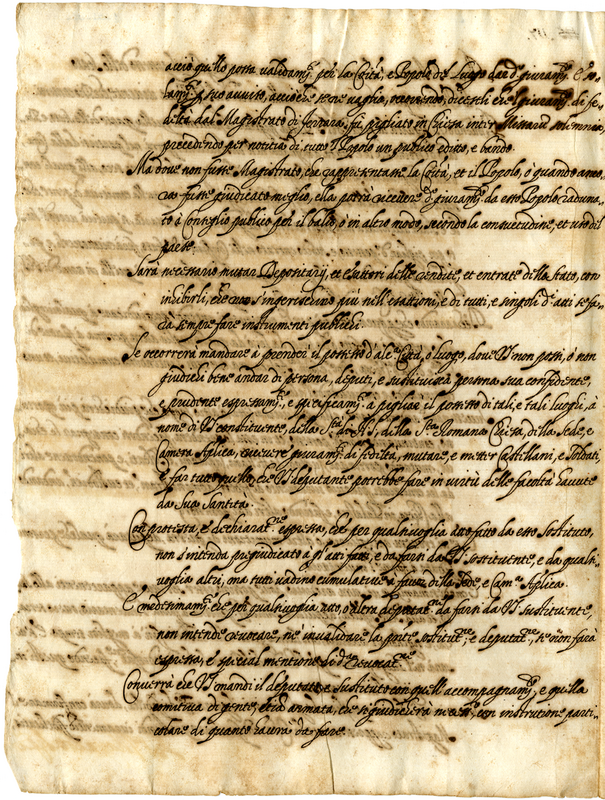 acciò quello possa validam.te per la Città, e Popolo del Luogo dar d.o giuram.to. E so-
lam.te suo avviso, acciò che se ne vaglia, occorrendo, dicendoli che'l giuram.to di fe-
deltà dal Magistrato di Ferrara, fù pigliato in Chiesa inter Missarũ solemnia,
precedendo per notitia di tutto 'l Popolo un publico editto, e bando.
Ma dove non fusse Magistrato, che rappresentasse la Città, et il Popolo, ò quando anco-
ra fusse giudicato meglio, ella potrà ricevere d.o giuram.to da esso Popolo raduna-
to à Conseglio publico per il balio, ò in altro modo, secondo la consuetudine, et uso del
paese.
Sarà necessario mutar Depositarij, et essattori delle rendite, et entrate dello stato, con
inibirli, che non s'ingerischino più nell'essattioni, e di tutti, e singoli d.i atti se fa-
rà sempre fare instrumenti publici.
Se occorrerà mandare à prender il possesso d'alc.a Città, ò luogo, dove VS non possi, ò non
giudichi bene andar di persona, deputi, e sustituirà persona sua confidente,
e prudente espressam.te, e specificam.te a pigliar il possesso di tali, e tali luoghi, à
nome di VS constituente, della S.tà di N.S. della S.ta Romana Chiesa, della Sede, e
Camera Aplica, ricevere giuram.ti di fedeltà, mutare, e metter Castellani, e Soldati,
e far tutto quello, che VS deputante potrebbe fare in virtù delle facoltà havute
da Sua Santità.
Con protesta, e dechiarat.ne espressa, che per qualsivoglia atto fatto da esso sostituto,
non s'intenda pregiudicato à gl'atti fatti, e da farsi da VS sostituente, e da qualsi-
voglia altri, ma tutti vadino cumulative à favor della Sede, e Cam.a Aplica.
E medesimam.te che per qualsivoglia atto, ò altra deputat.ne da farsi da VS sustituente,
non intende revocare, ne invalidare la p.nte sostitut.ne, e deputat.ne, se non farà
espressa, e special mentione di d.a revocat.ne
Converrà che VS mandi il deputato, e sustituto con quell'accompagnam.to, e quella
comitiva di gente, etiã armata, che si giudicherà necess.a, con instrutione parti-
colare di quanto haverà da fare.